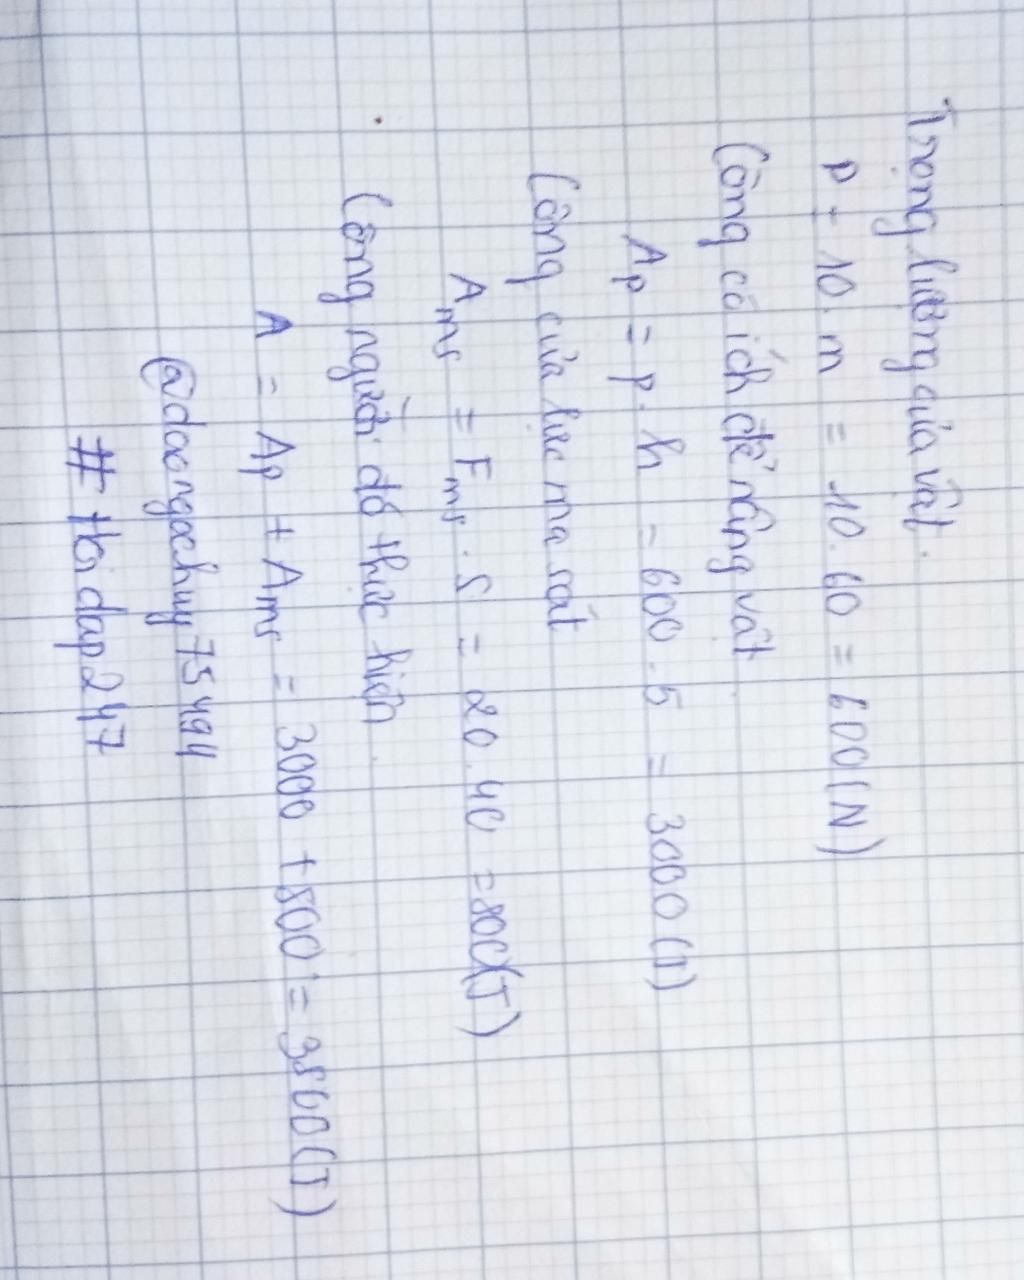 Trọng lượng của vật.
P = 10.m = 10.60 = 600(N)
Công có ích để nâng vật
Ap = p.h = 600.5 = 3000(J)
Công của lực ma sát
Ams = Fms.s = 20.40 = 800(J)
Công người đó thực hiện
A = Ap + Ams = 3000 + 800 = 3800(J)
@daongochuy75494
#Hoidap247